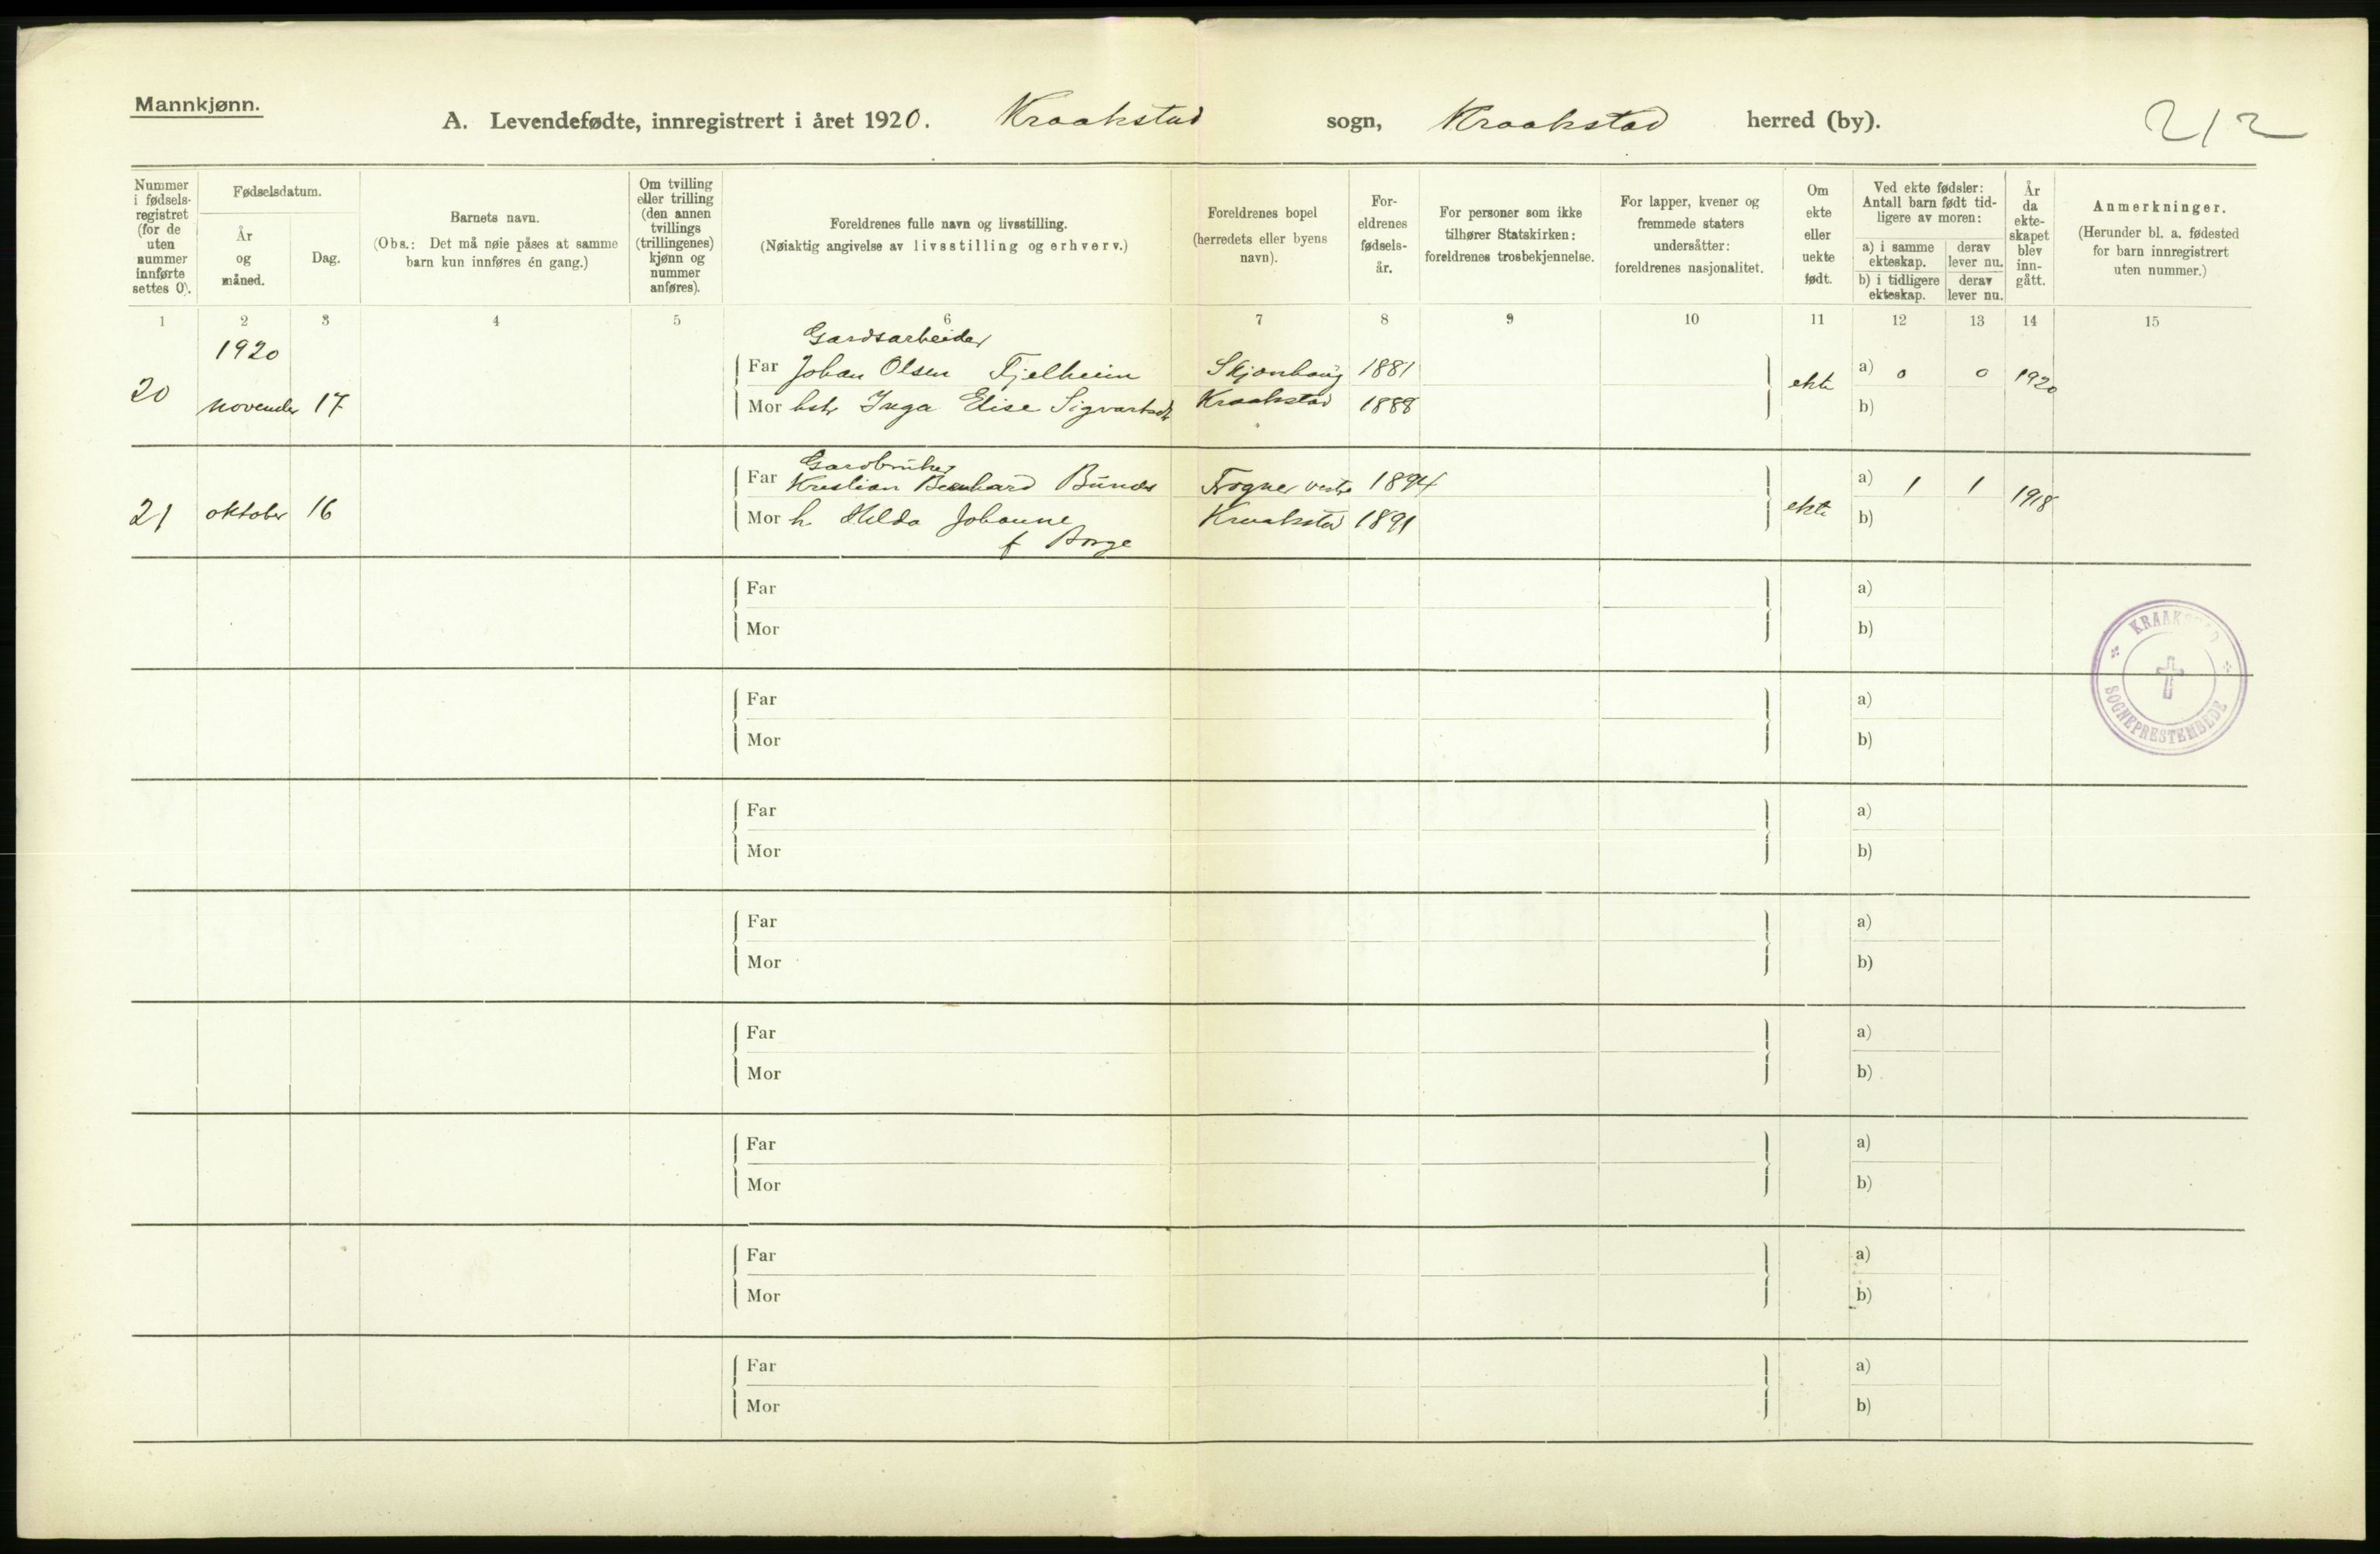 Mannkjønn.
A. Levendefødte, innregistrert i året 1920. Kraakstad sogn, Kraakstad herred (by). 212
Nummer i fødsels- registret (for de uten nummer innførte settes 0).
Fødselsdatum.
År og måned.
Dag.
Barnets navn.
(Obs.: Det må nøie påses at samme barn kun innføres én gang.)
Om tvilling eller trilling (den annen tvillings (trillingenes) kjønn og nummer anføres).
Foreldrenes fulle navn og livsstilling.
(Nøiaktig angivelse av livsstilling og erhverv.)
Foreldrenes bopel (herredets eller byens navn).
For- eldrenes fødsels- år.
For personer som ikke tilhører Statskirken: foreldrenes trosbekjennelse.
For lapper, kvener og fremmede staters undersåtter: foreldrenes nasjonalitet.
Om ekte eller uekte født.
Ved ekte fødsler: Antall barn født tid- ligere av moren:
a) i samme ekteskap.
derav lever nu.
b) i tidligere ekteskap.
derav lever nu.
År da ekte- skapet blev inn- gått.
Anmerkninger.
(Herunder bl. a. fødested for barn innregistrert uten nummer.)
1 2 3 4 5 6 7 8 9 10 11 12 13 14 15
1920
Gardsarbeider
Far Johan Olsen Fjelheim Skjønhaug 1881 a) 0 0
20 november 17 ekte 1920
Mor Inga Elise Kraakstad 1888 b)
Gardbruker
Far Kristian Bernhard Far Frogner vestre 1894 a) 1 1
21 oktober 16 ekte 1918
Mor h. Hilda Johanne Kraakstad 1891 b)
f Borge
Far a)
Mor b)
KRAAKSTAD
SOGNEPRESTEMBEDE
Far a)
Mor b)
Far a)
Mor b)
Far a)
Mor b)
Far a)
Mor b)
Far a)
Mor b)
Far a)
Mor b)
Far a)
Mor b)